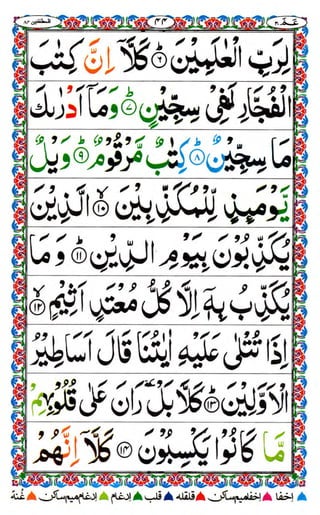 عـمّ ٣٠ ٤٤ المطففين ٨٣
لِرَبِّ الْعٰلَمِيْنَ ۟ؕ ٦ كَلَّاۤ اِنَّ كِتٰبَ
الْفُجَّارِ لَفِيْ سِجِّيْنٍ ؕ ٧ وَمَاۤ اَدْرٰىكَ
مَا سِجِّيْنٌ ؕ ٨ كِتٰبٌ مَّرْقُوْمٌ ؕ ٩ وَيْلٌ
يَّوْمَىِٕذٍ لِّلْمُكَذِّبِيْنَ ۙ ١٠ الَّذِيْنَ
يُكَذِّبُوْنَ بِيَوْمِ الدِّيْنِ ؕ ١١ وَمَا
يُكَذِّبُ بِهٖۤ اِلَّا كُلُّ مُعْتَدٍ اَثِيْمٍ ۙ ١٢
اِذَا تُتْلٰى عَلَيْهِ اٰيٰتُنَا قَالَ اَسَاطِيْرُ
الْاَوَّلِيْنَ ؕ ١٣ كَلَّا بَلْ ٚ رَانَ عَلٰى قُلُوْبِهِمْ
مَّا كَانُوْا يَكْسِبُوْنَ ١٤ كَلَّاۤ اِنَّهُمْ
اخفا اخفامیم ساکن قلقلہ قلب ادغام ادغام میم ساکن غنہ